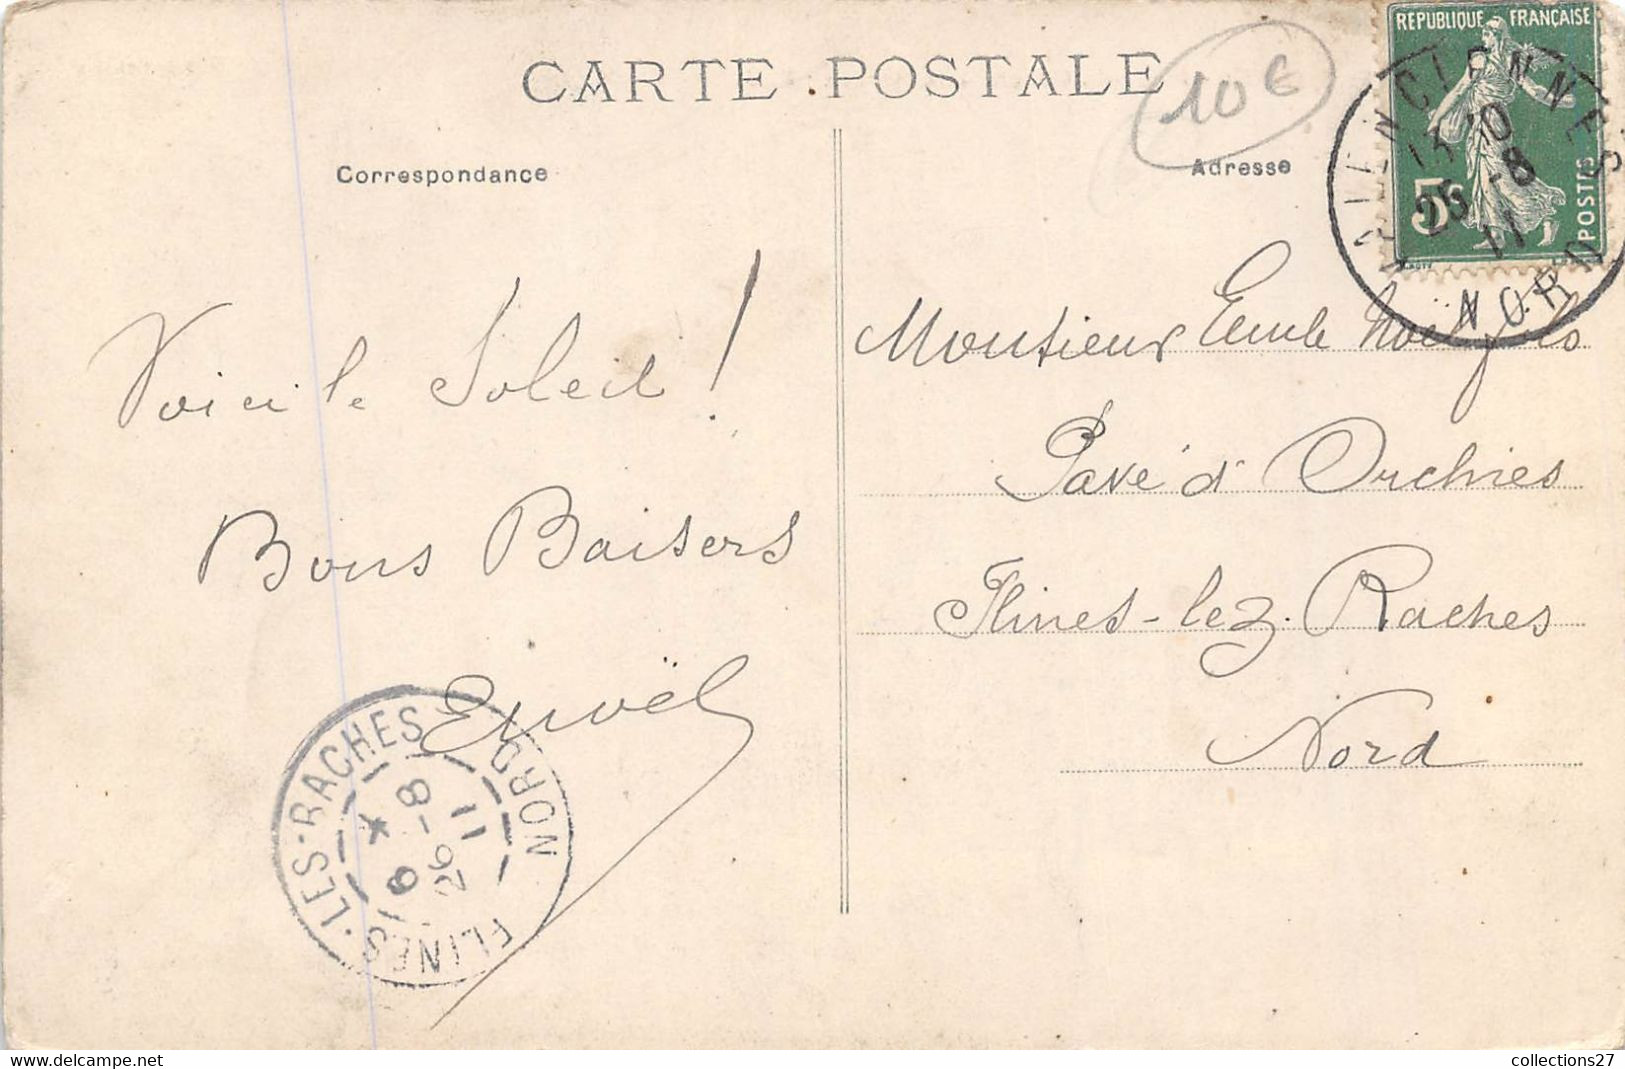 CARTE POSTALE
10€
Correspondance
Adresse
REPUBLIQUE FRANÇAISE
5c
POSTES
VALENCIENNES
13 10
25 -8
11
NORD
Voici le Soleil !
Bons Baisers
Enoël
Monsieur Emile Noël fils
Pavé d'Orchies
Flines-lez-Raches
Nord
FLINES-LES-RACHES
NORD
6 *
26 -8
11
collections27